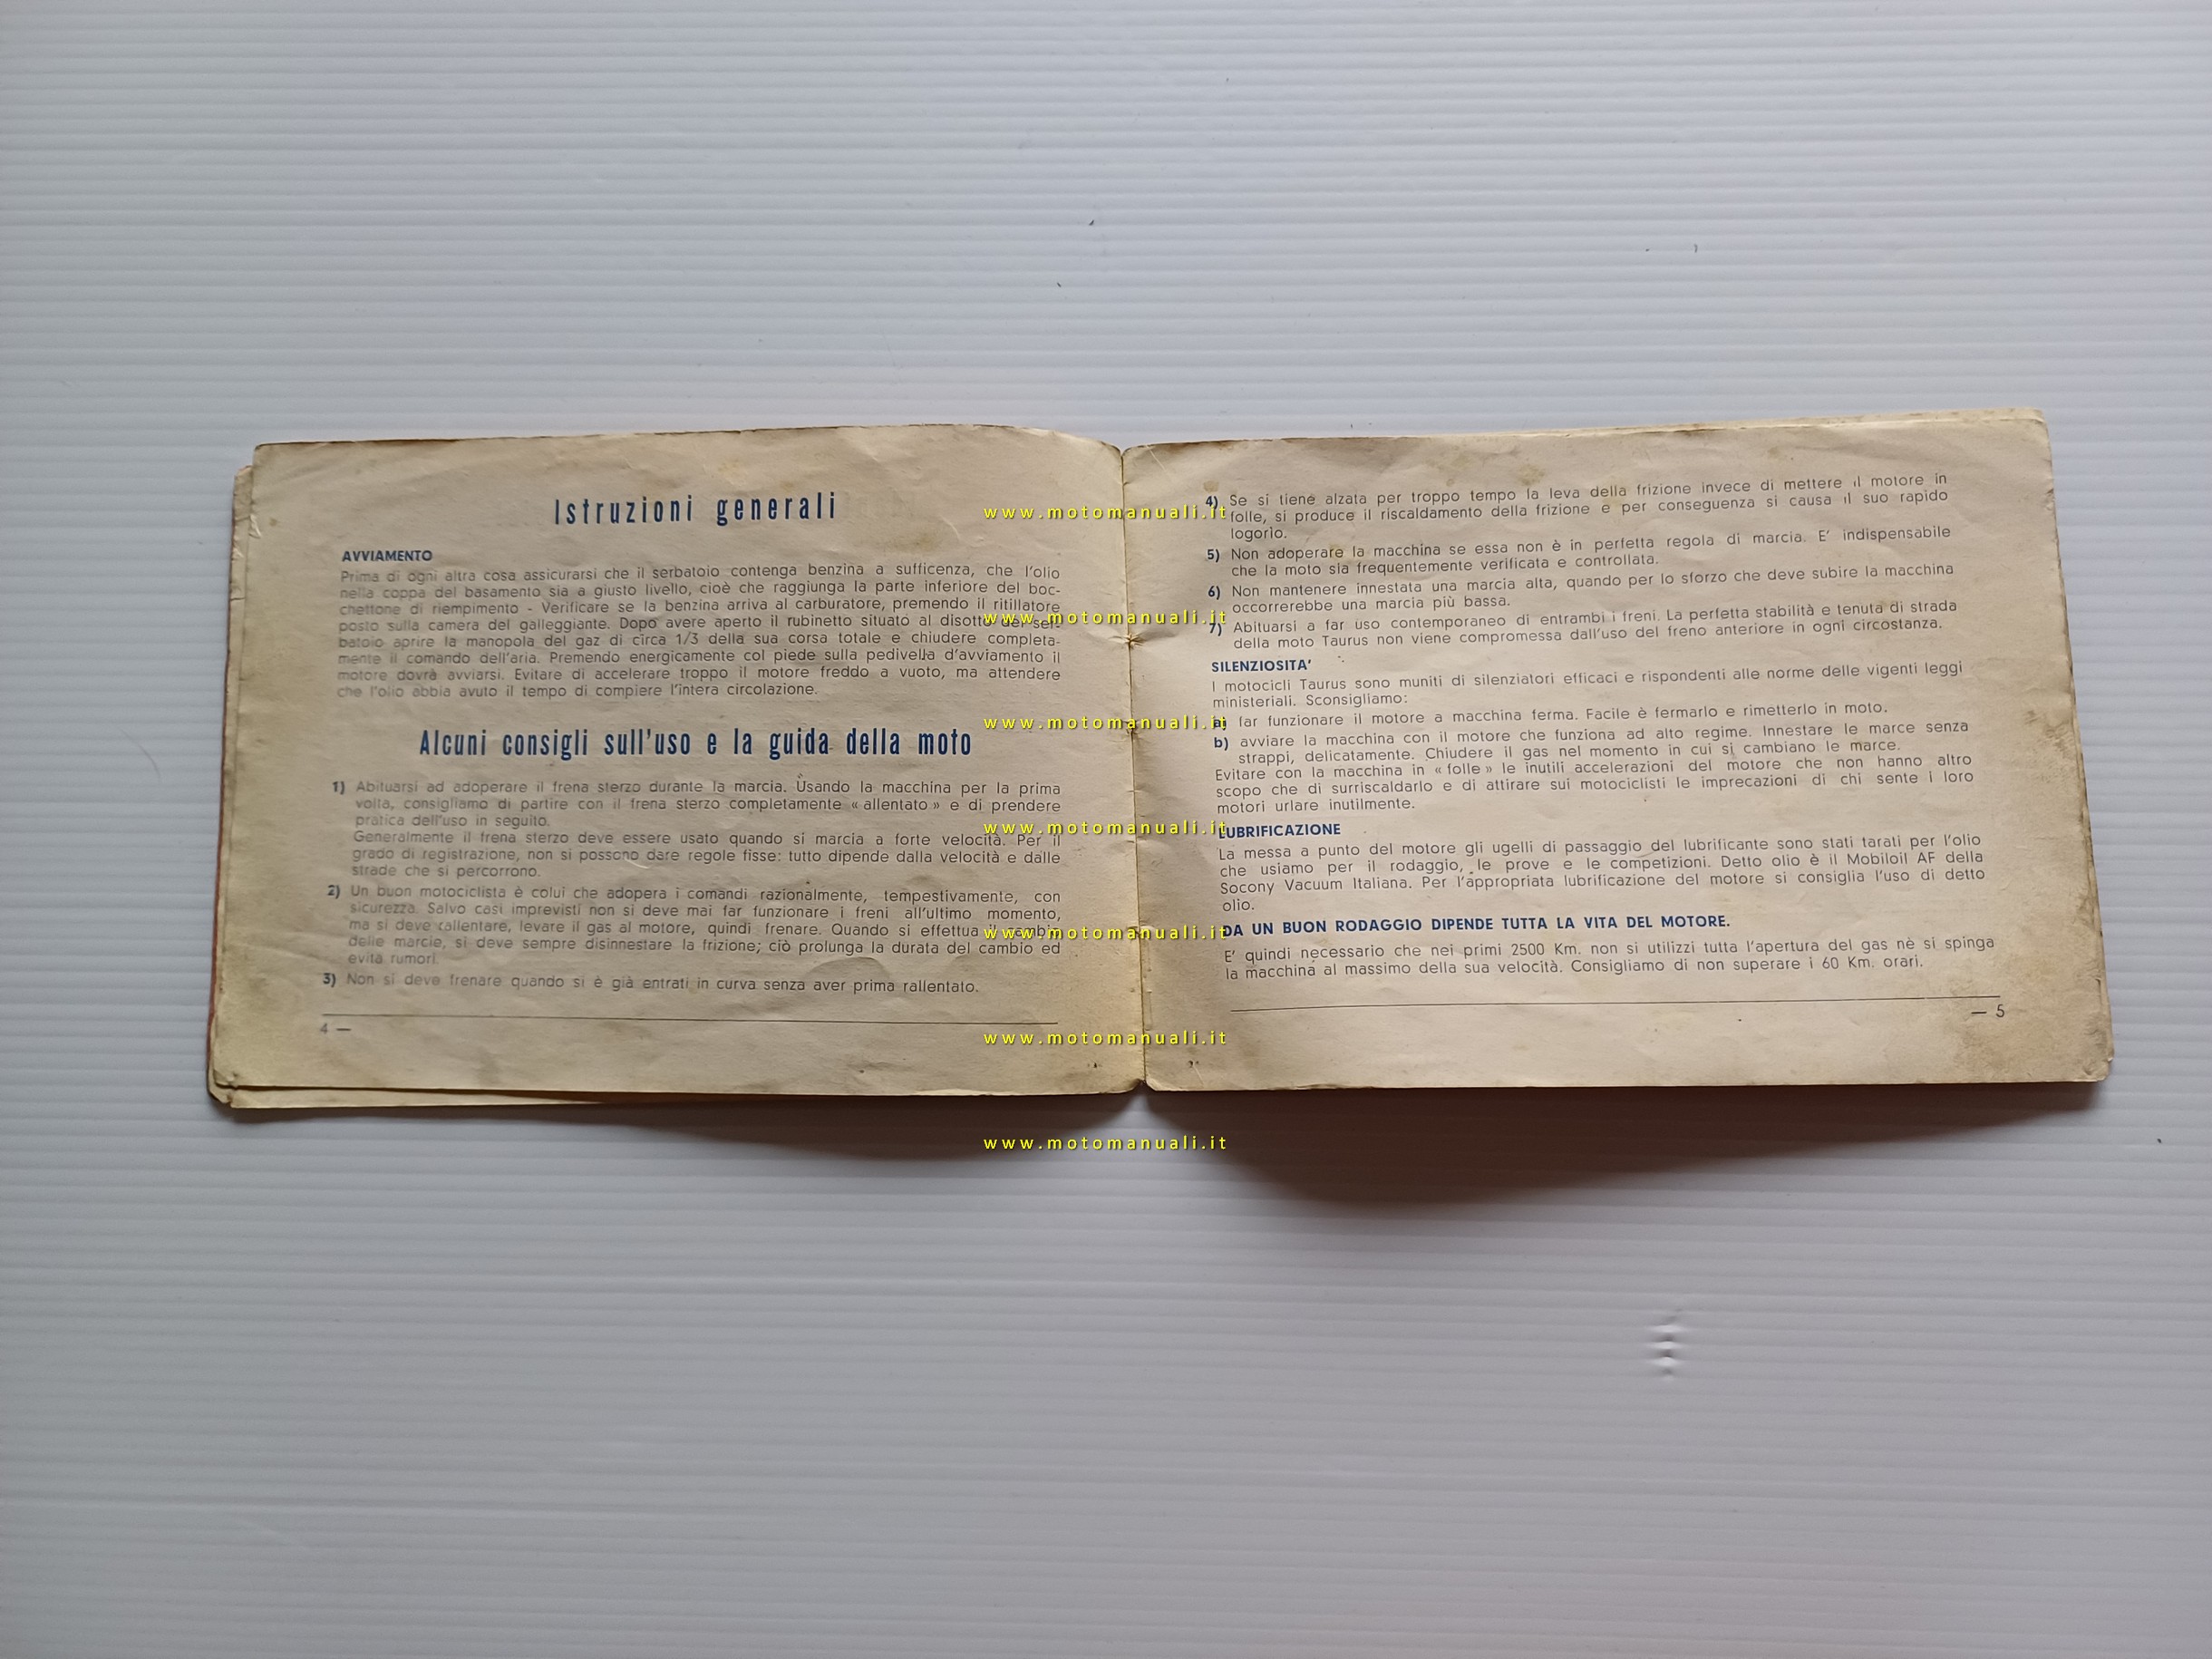 Istruzioni generali
AVVIAMENTO
Prima di ogni altra cosa assicurarsi che il serbatoio contenga benzina a sufficenza, che l'olio
nella coppa del basamento sia a giusto livello, cioè che raggiunga la parte inferiore del boc-
chettone di riempimento - Verificare se la benzina arriva al carburatore, premendo il ritillatore
posto sulla camera del galleggiante. Dopo avere aperto il rubinetto situato al disotto del ser-
batoio aprire la manopola del gaz di circa 1/3 della sua corsa totale e chiudere completa-
mente il comando dell'aria. Premendo energicamente col piede sulla pedivella d'avviamento il
motore dovrà avviarsi. Evitare di accelerare troppo il motore freddo a vuoto, ma attendere
che l'olio abbia avuto il tempo di compiere l'intera circolazione.
Alcuni consigli sull'uso e la guida della moto
1) Abituarsi ad adoperare il frena sterzo durante la marcia. Usando la macchina per la prima
volta, consigliamo di partire con il frena sterzo completamente « allentato » e di prendere
pratica dell'uso in seguito.
Generalmente il frena sterzo deve essere usato quando si marcia a forte velocità. Per il
grado di registrazione, non si possono dare regole fisse: tutto dipende dalla velocità e dalle
strade che si percorrono.
2) Un buon motociclista è colui che adopera i comandi razionalmente, tempestivamente, con
sicurezza. Salvo casi imprevisti non si deve mai far funzionare i freni all'ultimo momento,
ma si deve rallentare, levare il gas al motore, quindi frenare. Quando si effettua il cambio
delle marcie, si deve sempre disinnestare la frizione; ciò prolunga la durata del cambio ed
evita rumori.
3) Non si deve frenare quando si è già entrati in curva senza aver prima rallentato.
4 —
4) Se si tiene alzata per troppo tempo la leva della frizione invece di mettere il motore in
folle, si produce il riscaldamento della frizione e per conseguenza si causa il suo rapido
logorio.
5) Non adoperare la macchina se essa non è in perfetta regola di marcia. E' indispensabile
che la moto sia frequentemente verificata e controllata.
6) Non mantenere innestata una marcia alta, quando per lo sforzo che deve subire la macchina
occorrerebbe una marcia più bassa.
7) Abituarsi a far uso contemporaneo di entrambi i freni. La perfetta stabilità e tenuta di strada
della moto Taurus non viene compromessa dall'uso del freno anteriore in ogni circostanza.
SILENZIOSITA'
I motocicli Taurus sono muniti di silenziatori efficaci e rispondenti alle norme delle vigenti leggi
ministeriali. Sconsigliamo:
a) far funzionare il motore a macchina ferma. Facile è fermarlo e rimetterlo in moto.
b) avviare la macchina con il motore che funziona ad alto regime. Innestare le marce senza
strappi, delicatamente. Chiudere il gas nel momento in cui si cambiano le marce.
Evitare con la macchina in « folle » le inutili accelerazioni del motore che non hanno altro
scopo che di surriscaldarlo e di attirare sui motociclisti le imprecazioni di chi sente i loro
motori urlare inutilmente.
LUBRIFICAZIONE
La messa a punto del motore gli ugelli di passaggio del lubrificante sono stati tarati per l'olio
che usiamo per il rodaggio, le prove e le competizioni. Detto olio è il Mobiloil AF della
Socony Vacuum Italiana. Per l'appropriata lubrificazione del motore si consiglia l'uso di detto
olio.
DA UN BUON RODAGGIO DIPENDE TUTTA LA VITA DEL MOTORE.
E' quindi necessario che nei primi 2500 Km. non si utilizzi tutta l'apertura del gas nè si spinga
la macchina al massimo della sua velocità. Consigliamo di non superare i 60 Km. orari.
— 5
www.motomanuali.it
www.motomanuali.it
www.motomanuali.it
www.motomanuali.it
www.motomanuali.it
www.motomanuali.it
www.motomanuali.it